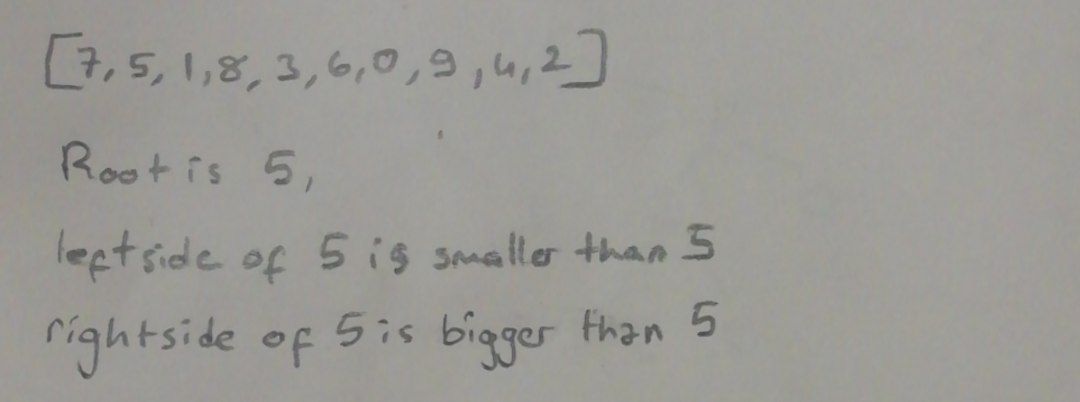 [7, 5, 1, 8, 3, 6, 0, 9, 4, 2]
Root is 5,
left side of 5 is smaller than 5
right side of 5 is bigger than 5